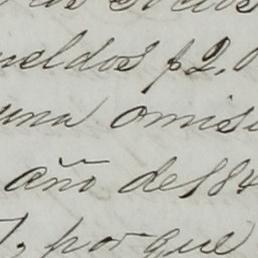 ueldos p 2.
una omis
año de 184
porque